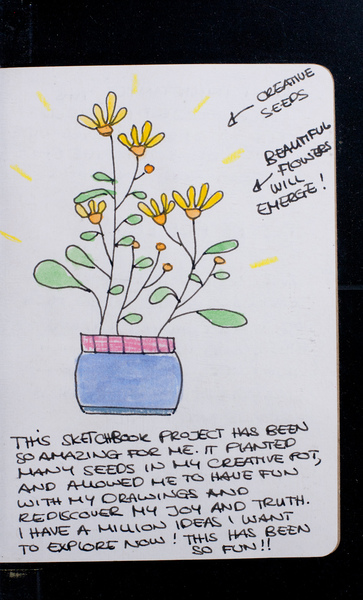 CREATIVE
SEEDS
BEAUTIFUL
FLOWERS
WILL
EMERGE!
THIS SKETCHBOOK PROJECT HAS BEEN
SO AMAZING FOR ME. IT PLANTED
MANY SEEDS IN MY CREATIVE POT,
AND ALLOWED ME TO HAVE FUN
WITH MY DRAWINGS AND
REDISCOVER MY JOY AND TRUTH.
I HAVE A MILLION IDEAS I WANT
TO EXPLORE NOW! THIS HAS BEEN
SO FUN!!